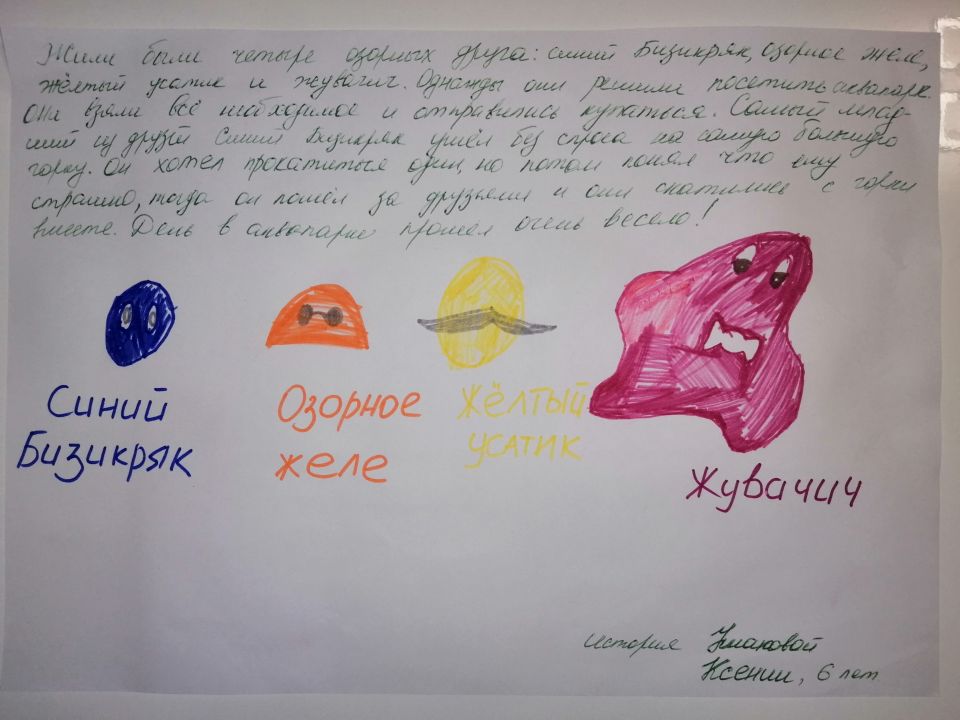 Жили были четыре озорных друга: синий Бизикряк, озорное желе,
жёлтый усатик и жувачич. Однажды они решили посетить аквапарк.
Они взяли всё необходимое и отправились купаться. Самый млад-
ший из друзей Синий Бизикряк ушёл без спроса на самую большую
горку. Он хотел прокатиться один, но потом понял что ему
страшно, тогда он пошёл за друзьями и они скатились с горки
вместе. День в аквапарке прошел очень весело!
Синий
Бизикряк
Озорное
желе
Жёлтый
усатик
Жувачич
история Ушаковой
Ксении, 6 лет